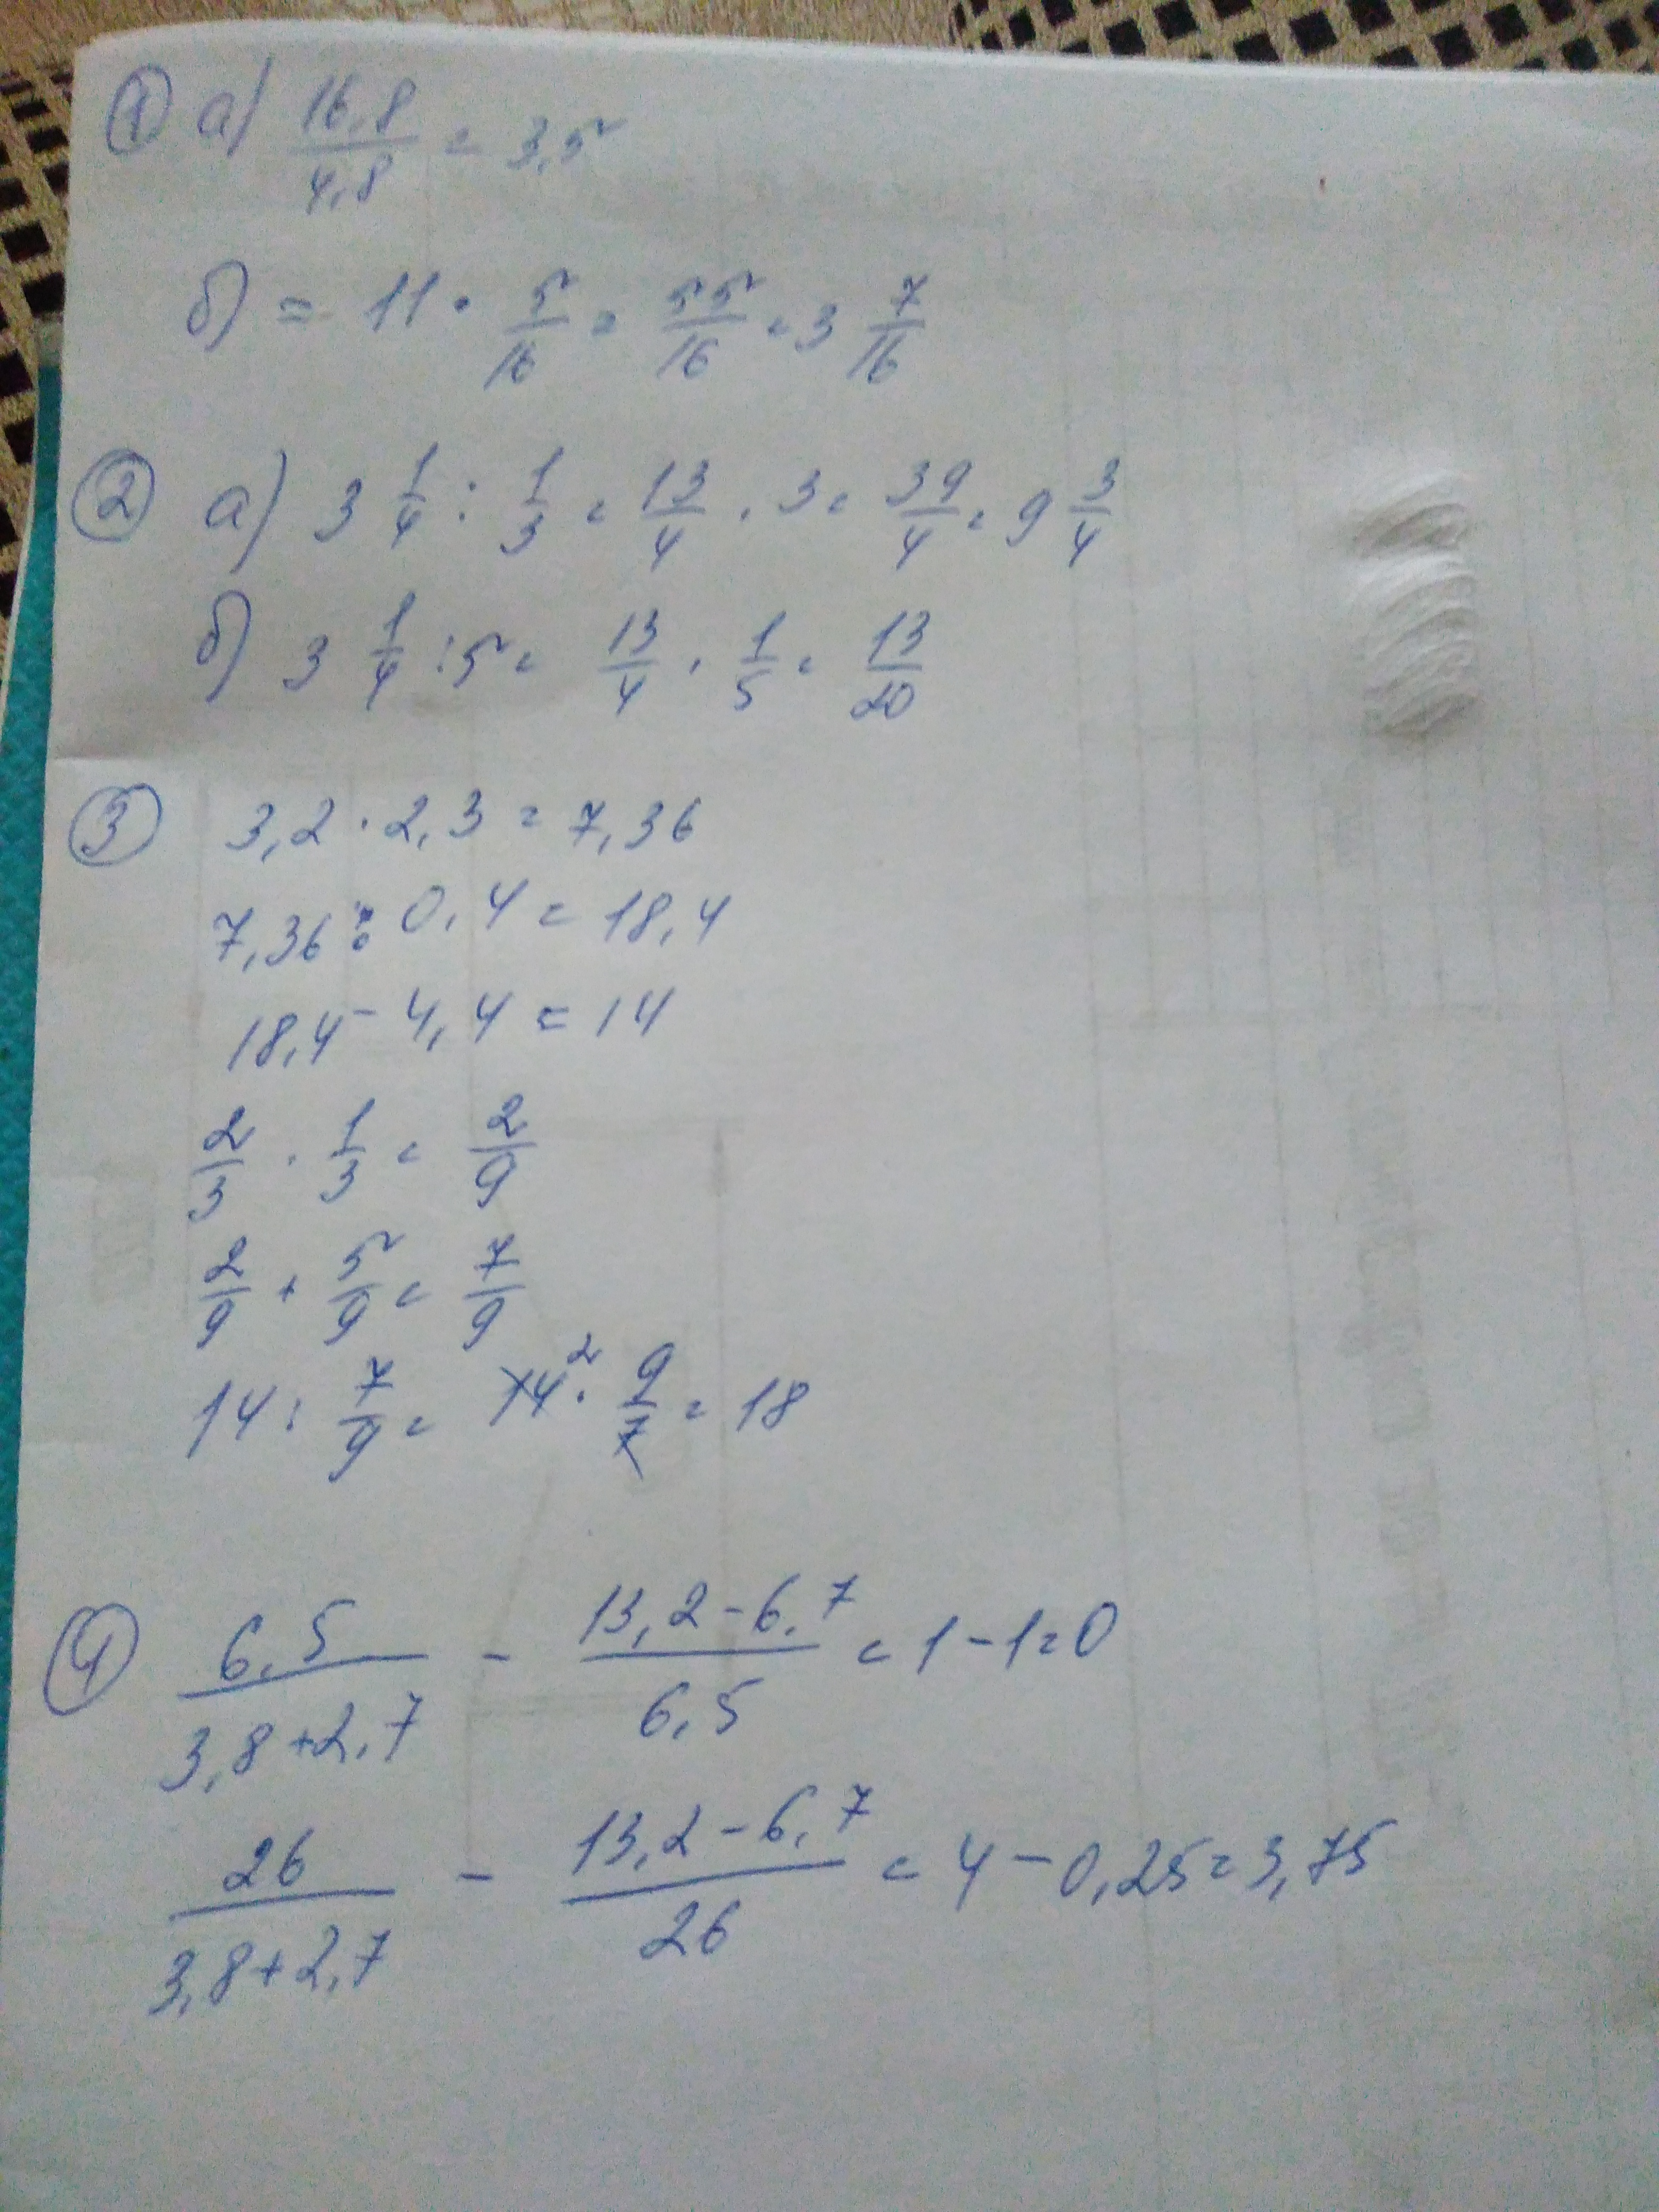 ① а) 16,8/4,8 = 3,5
б) = 11 · 5/16 = 55/16 = 3 7/16
② а) 3 1/4 : 1/3 = 13/4 · 3 = 39/4 = 9 3/4
б) 3 1/4 : 5 = 13/4 · 1/5 = 13/20
③ 3,2 · 2,3 = 7,36
7,36 : 0,4 = 18,4
18,4 - 4,4 = 14
2/3 · 1/3 = 2/9
2/9 + 5/9 = 7/9
14 : 7/9 = 14² · 9/7 = 18
④ 6,5/(3,8+2,7) - (13,2-6,7)/6,5 = 1-1=0
26/(3,8+2,7) - (13,2-6,7)/26 = 4-0,25=3,75